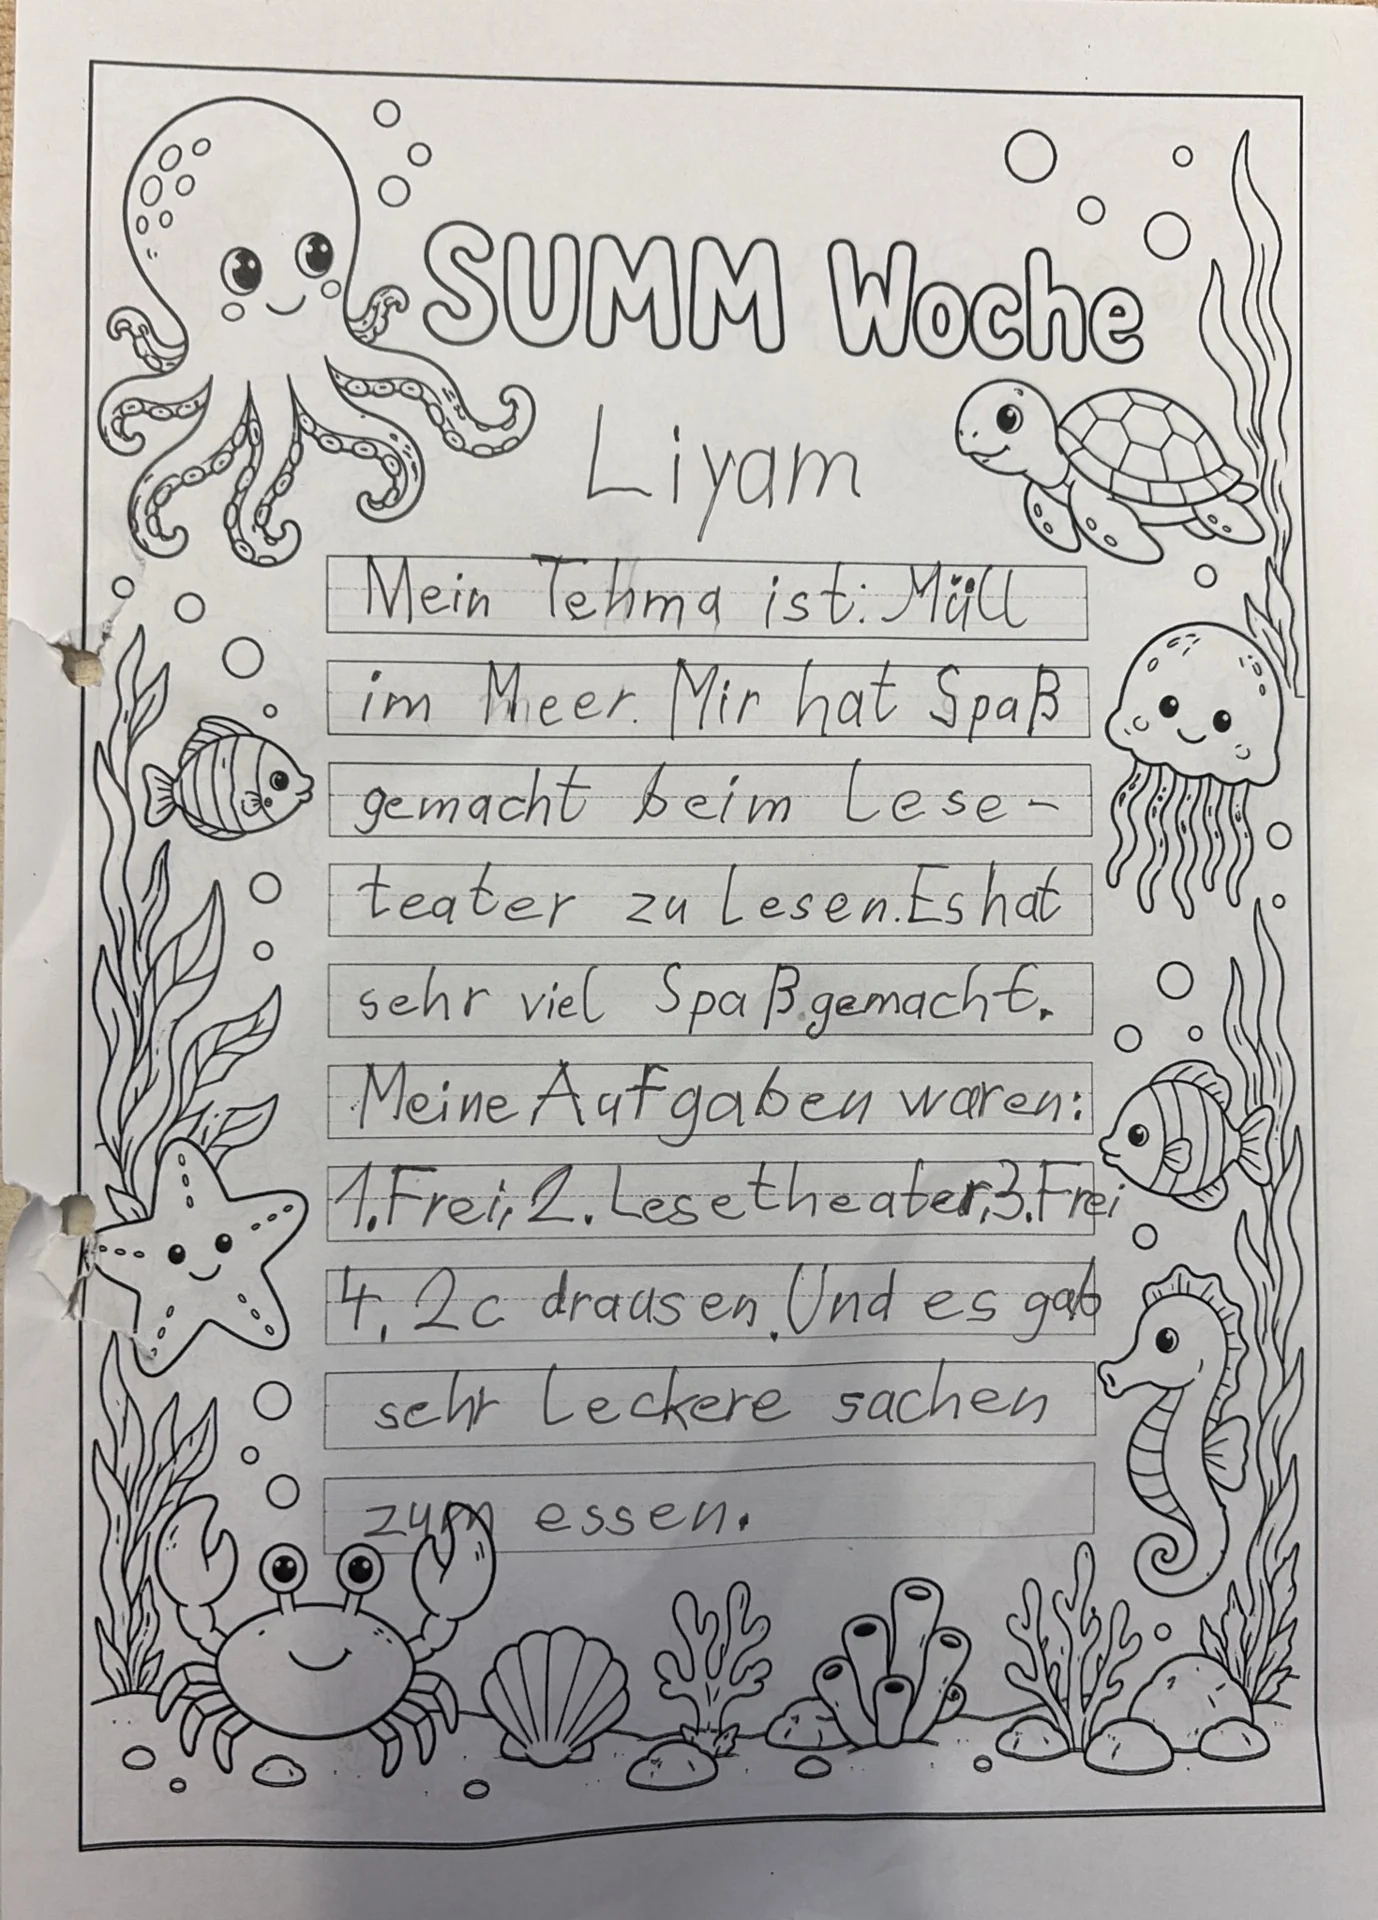 SUMM Woche
Liyam
Mein Tehma ist: Müll
im Meer. Mir hat Spaß
gemacht beim Lese-
teater zu Lesen. Es hat
sehr viel Spaß gemacht.
Meine Aufgaben waren:
1. Frei, 2. Lesetheater, 3. Frei
4. 2c drausen. Und es gab
sehr leckere sachen
zum essen.